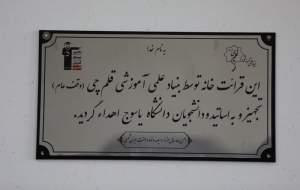 بنام خدا
این قرائت خانه توسط بنیاد علمی آموزشی قلم چی (وقف عام)
تجهیز و به اساتید و دانشجویان دانشگاه یاسوج اهداء گردید.